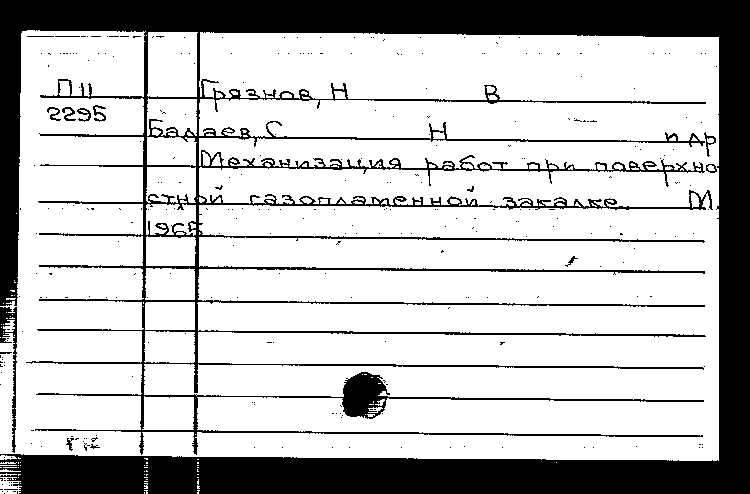 П 11 Грязнов, Н В
2295
Бадаев, С Н и др
Механизация работ при поверхно
стной газопламенной закалке. М.
1965